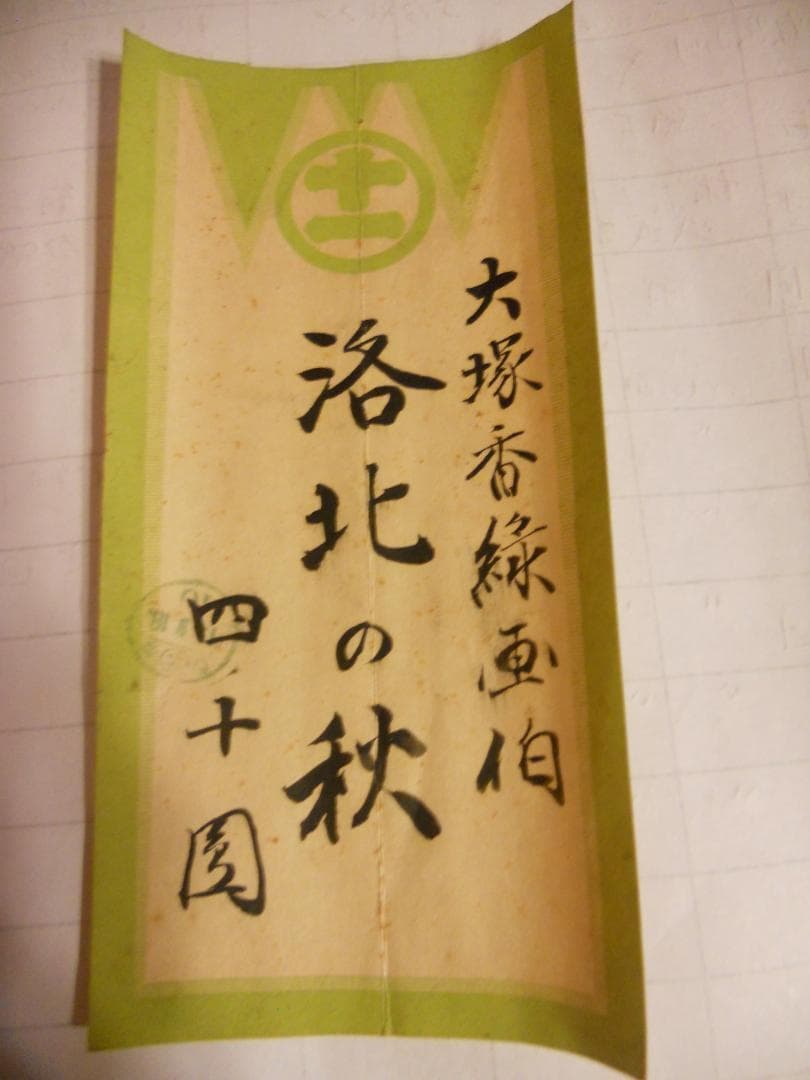 十一
大塚香綠画伯
洛北の秋
四十圓